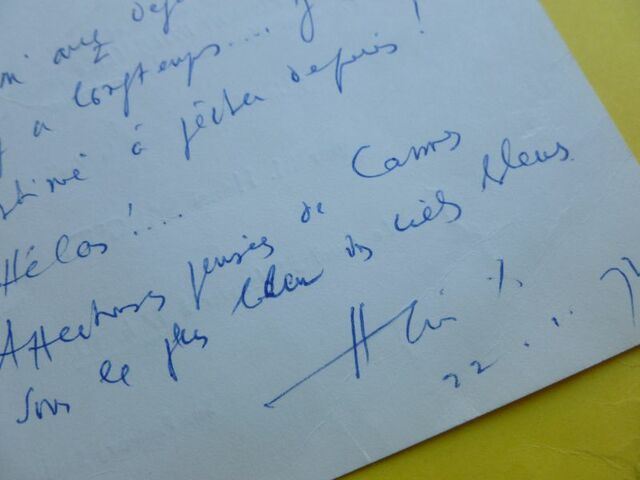 avez déjà
a longtemps.... j
à pêcher depuis !
Hélas !....
Affectueuses pensées de Cannes
sous le plus bleu des ciels bleus
22